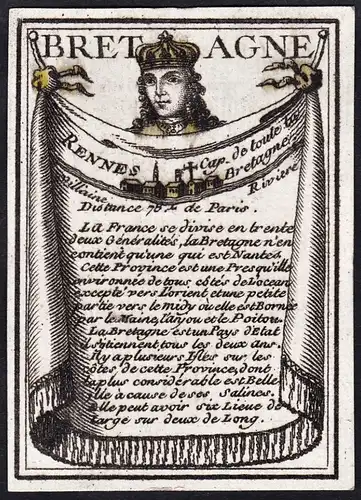 BRETAGNE
RENNES Cap. de toute la
Bretagne
Villaine Riviere
Distance 75 L. de Paris.
La France se divise en trente
deux Généralités, la Bretagne n'en
contient qu'une qui est Nantes
Cette Province est une Presqu'Ille
environnée de tous côtés de L'ocean
excepté vers L'orient et une petite
partie vers le midy ou elle est Bornée
par le Maine, l'anjou et le Poitou.
La Bretagne est un Pays d'Etat
ils tiennent tous les deux ans.
Il y a plusieurs Isles sur les
côtes de cette Province, dont
la plus considérable est Belle
Ille à cause de ses Salines.
Elle peut avoir six Lieue de
Large sur deux de Long.